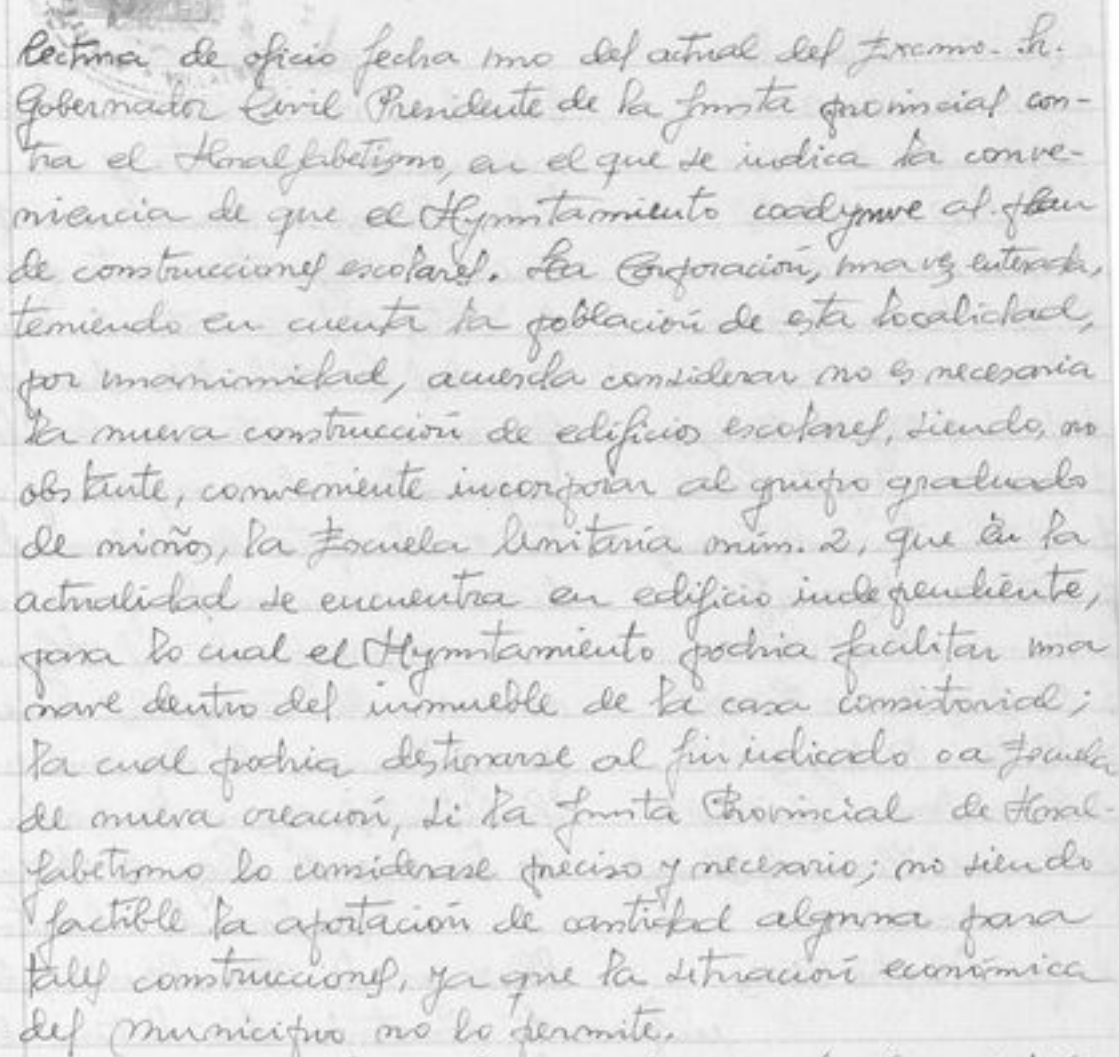 lectura de oficio fecha uno del actual del Excmo. Sr.
Gobernador Civil Presidente de la Junta provincial con-
tra el Analfabetismo, en el que se indica la conve-
niencia de que el Ayuntamiento coadyuve al plan
de construcciones escolares. La Corporación, una vez enterada,
teniendo en cuenta la población de esta localidad,
por unanimidad, acuerda considerar no es necesaria
la nueva construcción de edificios escolares, siendo, no
obstante, conveniente incorporar al grupo graduado
de niños, la Escuela Unitaria núm. 2, que en la
actualidad se encuentra en edificio independiente,
para lo cual el Ayuntamiento podria facilitar una
nave dentro del inmueble de la casa consistorial;
la cual podria destinarse al fin indicado o a Escuela
de nueva creación, si la Junta Provincial de Anal-
fabetismo lo considerase preciso y necesario; no siendo
factible la aportación de cantidad alguna para
tales construcciones, ya que la situación económica
del municipio no lo permite.